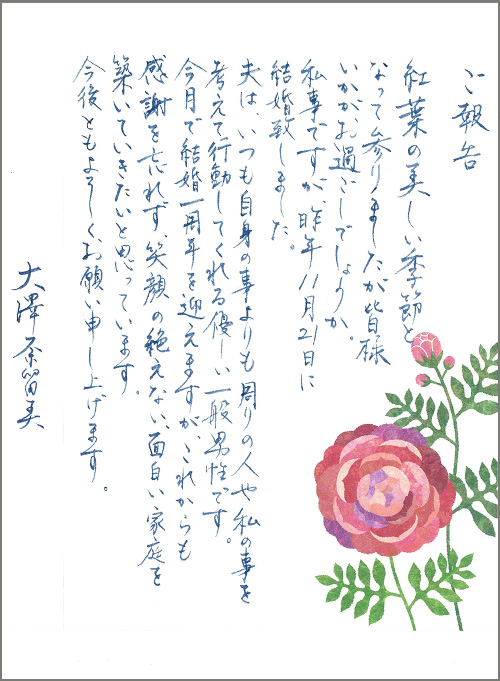 ご報告
紅葉の美しい季節と
なって参りましたが皆様
いかがお過ごしでしょうか。
私事ですが、昨年11月21日に
結婚致しました。
夫は、いつも自身の事よりも周りの人や私の事を
考えて行動してくれる優しい一般男性です。
今月で結婚一周年を迎えますが、これからも
感謝を忘れず、笑顔の絶えない、面白い家庭を
築いていきたいと思っています。
今後ともよろしくお願い申し上げます。
大澤奈留美